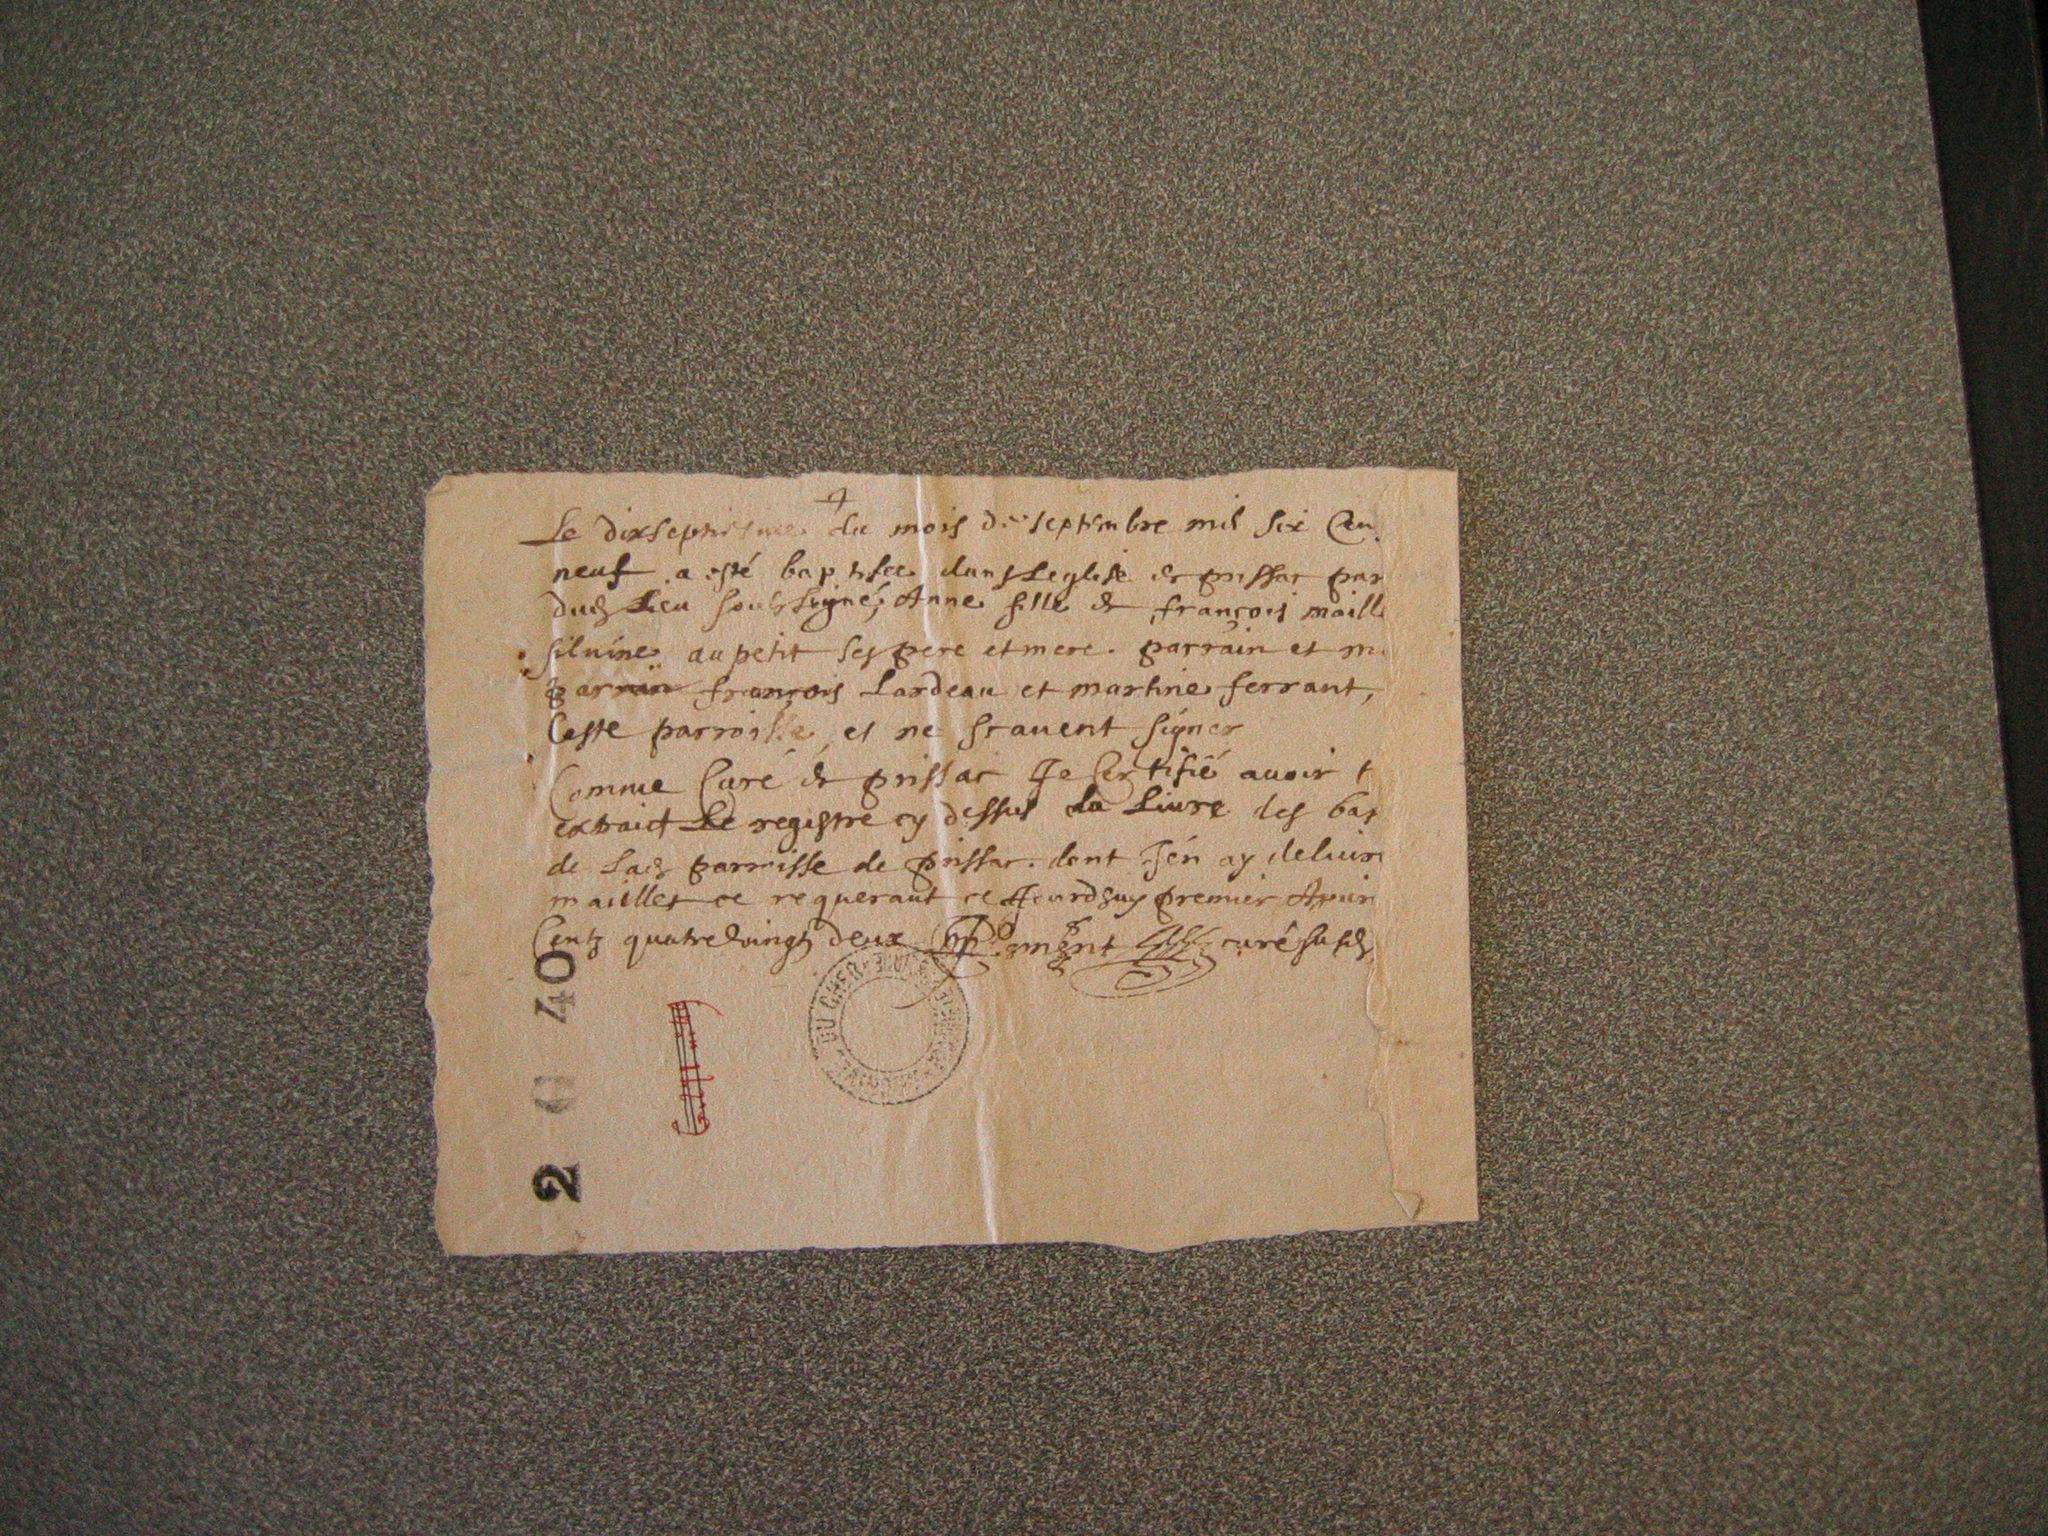 Le dixseptiesme du mois de septembre mil six Cen
neuf a esté baptisee dans Leglise de prissac par
dud Lieu soubsigné, Anne fille de françois maill
silvine aupetit ses pere et mere. parrain et m
parrain françois Lardeau et martine ferrant,
Ceste parroisse et ne scavent signer
Comme Curé de prissac Je Certifié avoir
extraict Le registre cy dessus La Livre des bap
de Lad parroisse de prissac. dont Jen ay delivr
maillet ce requerant ce Jourdhuy premier Apvri
Centz quatre vingtz deux curé susd
DU CHER
2 40